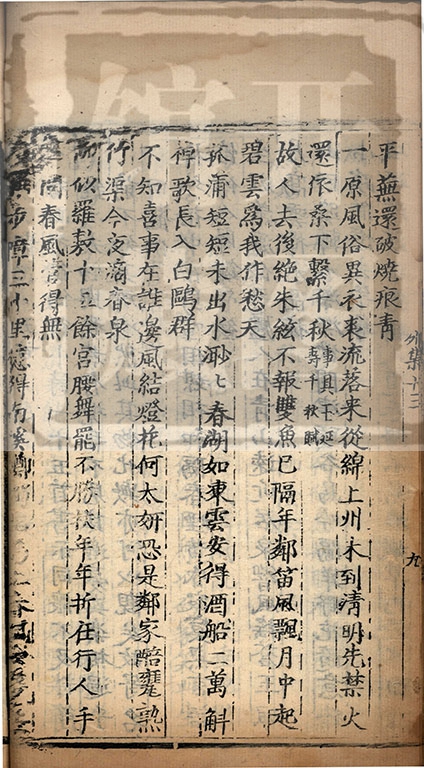 平蕪還破燒痕青
一原風俗異衣裘流落來從綿上州未到清明先禁火
還依桑下繫千秋事具下延壽千秋賦
故人去後絶朱絃不報雙魚已隔年鄰笛風飄月中起
碧雲爲我作愁天
菰蒲短短未出水渺〻春湖如凍雲安得酒船二萬斛
棹歌長入白鷗群
不知喜事在誰邊風結燈花何太妍恐是鄰家醅甕熟
竹渠今夜滴春泉
面似羅敷十五餘宮腰舞罷不勝扶年年折在行人手
問春風管得無
步障三十里
外集十三
九